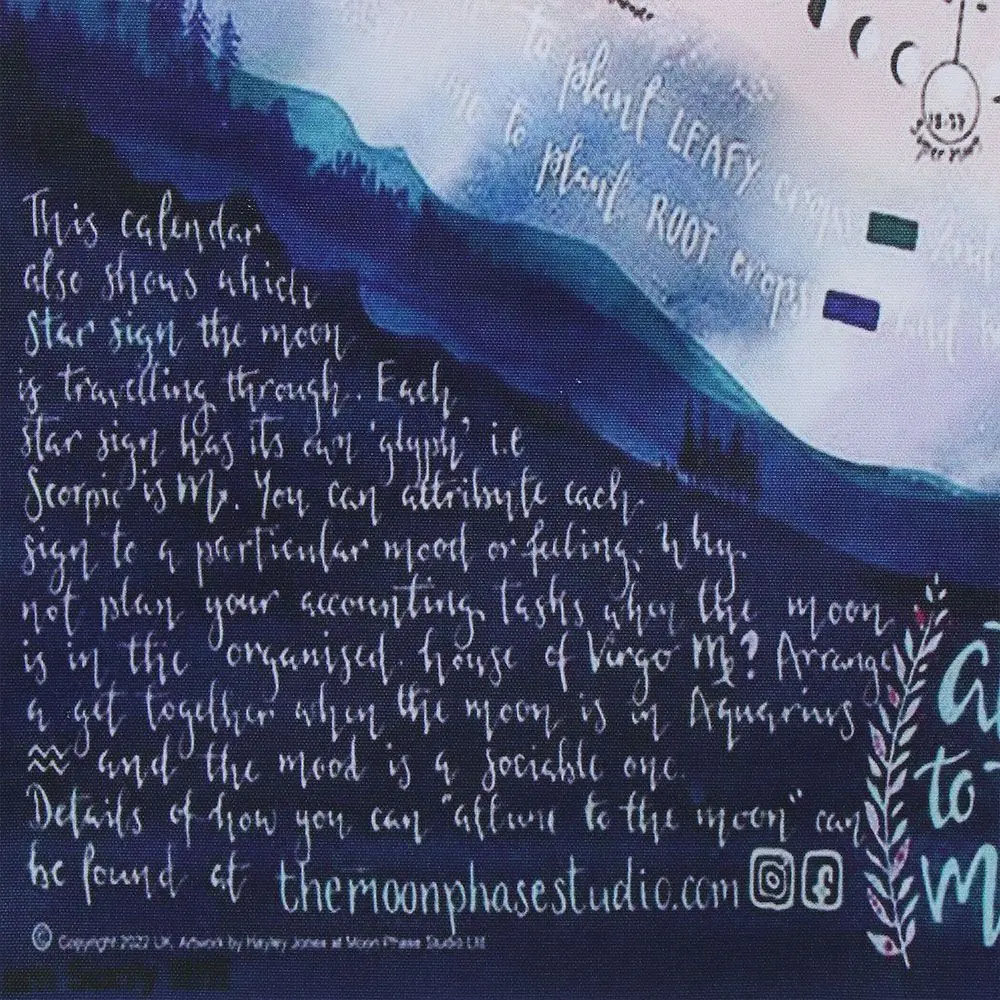 to plant LEAFY crops
to plant ROOT crops
This calendar
also shows which
star sign the moon
is travelling through. Each
star sign has its own 'glyph' i.e
Scorpio is ♏. You can attribute each
sign to a particular mood or feeling. Why
not plan your accounting tasks when the moon
is in the organised house of Virgo ♍? Arrange
a get together when the moon is in Aquarius
♒ and the mood is a sociable one.
Details of how you can "attune to the moon" can
be found at themoonphasestudio.com
© Copyright 2022 UK. Artwork by Hayley Jones at Moon Phase Studio Ltd
to